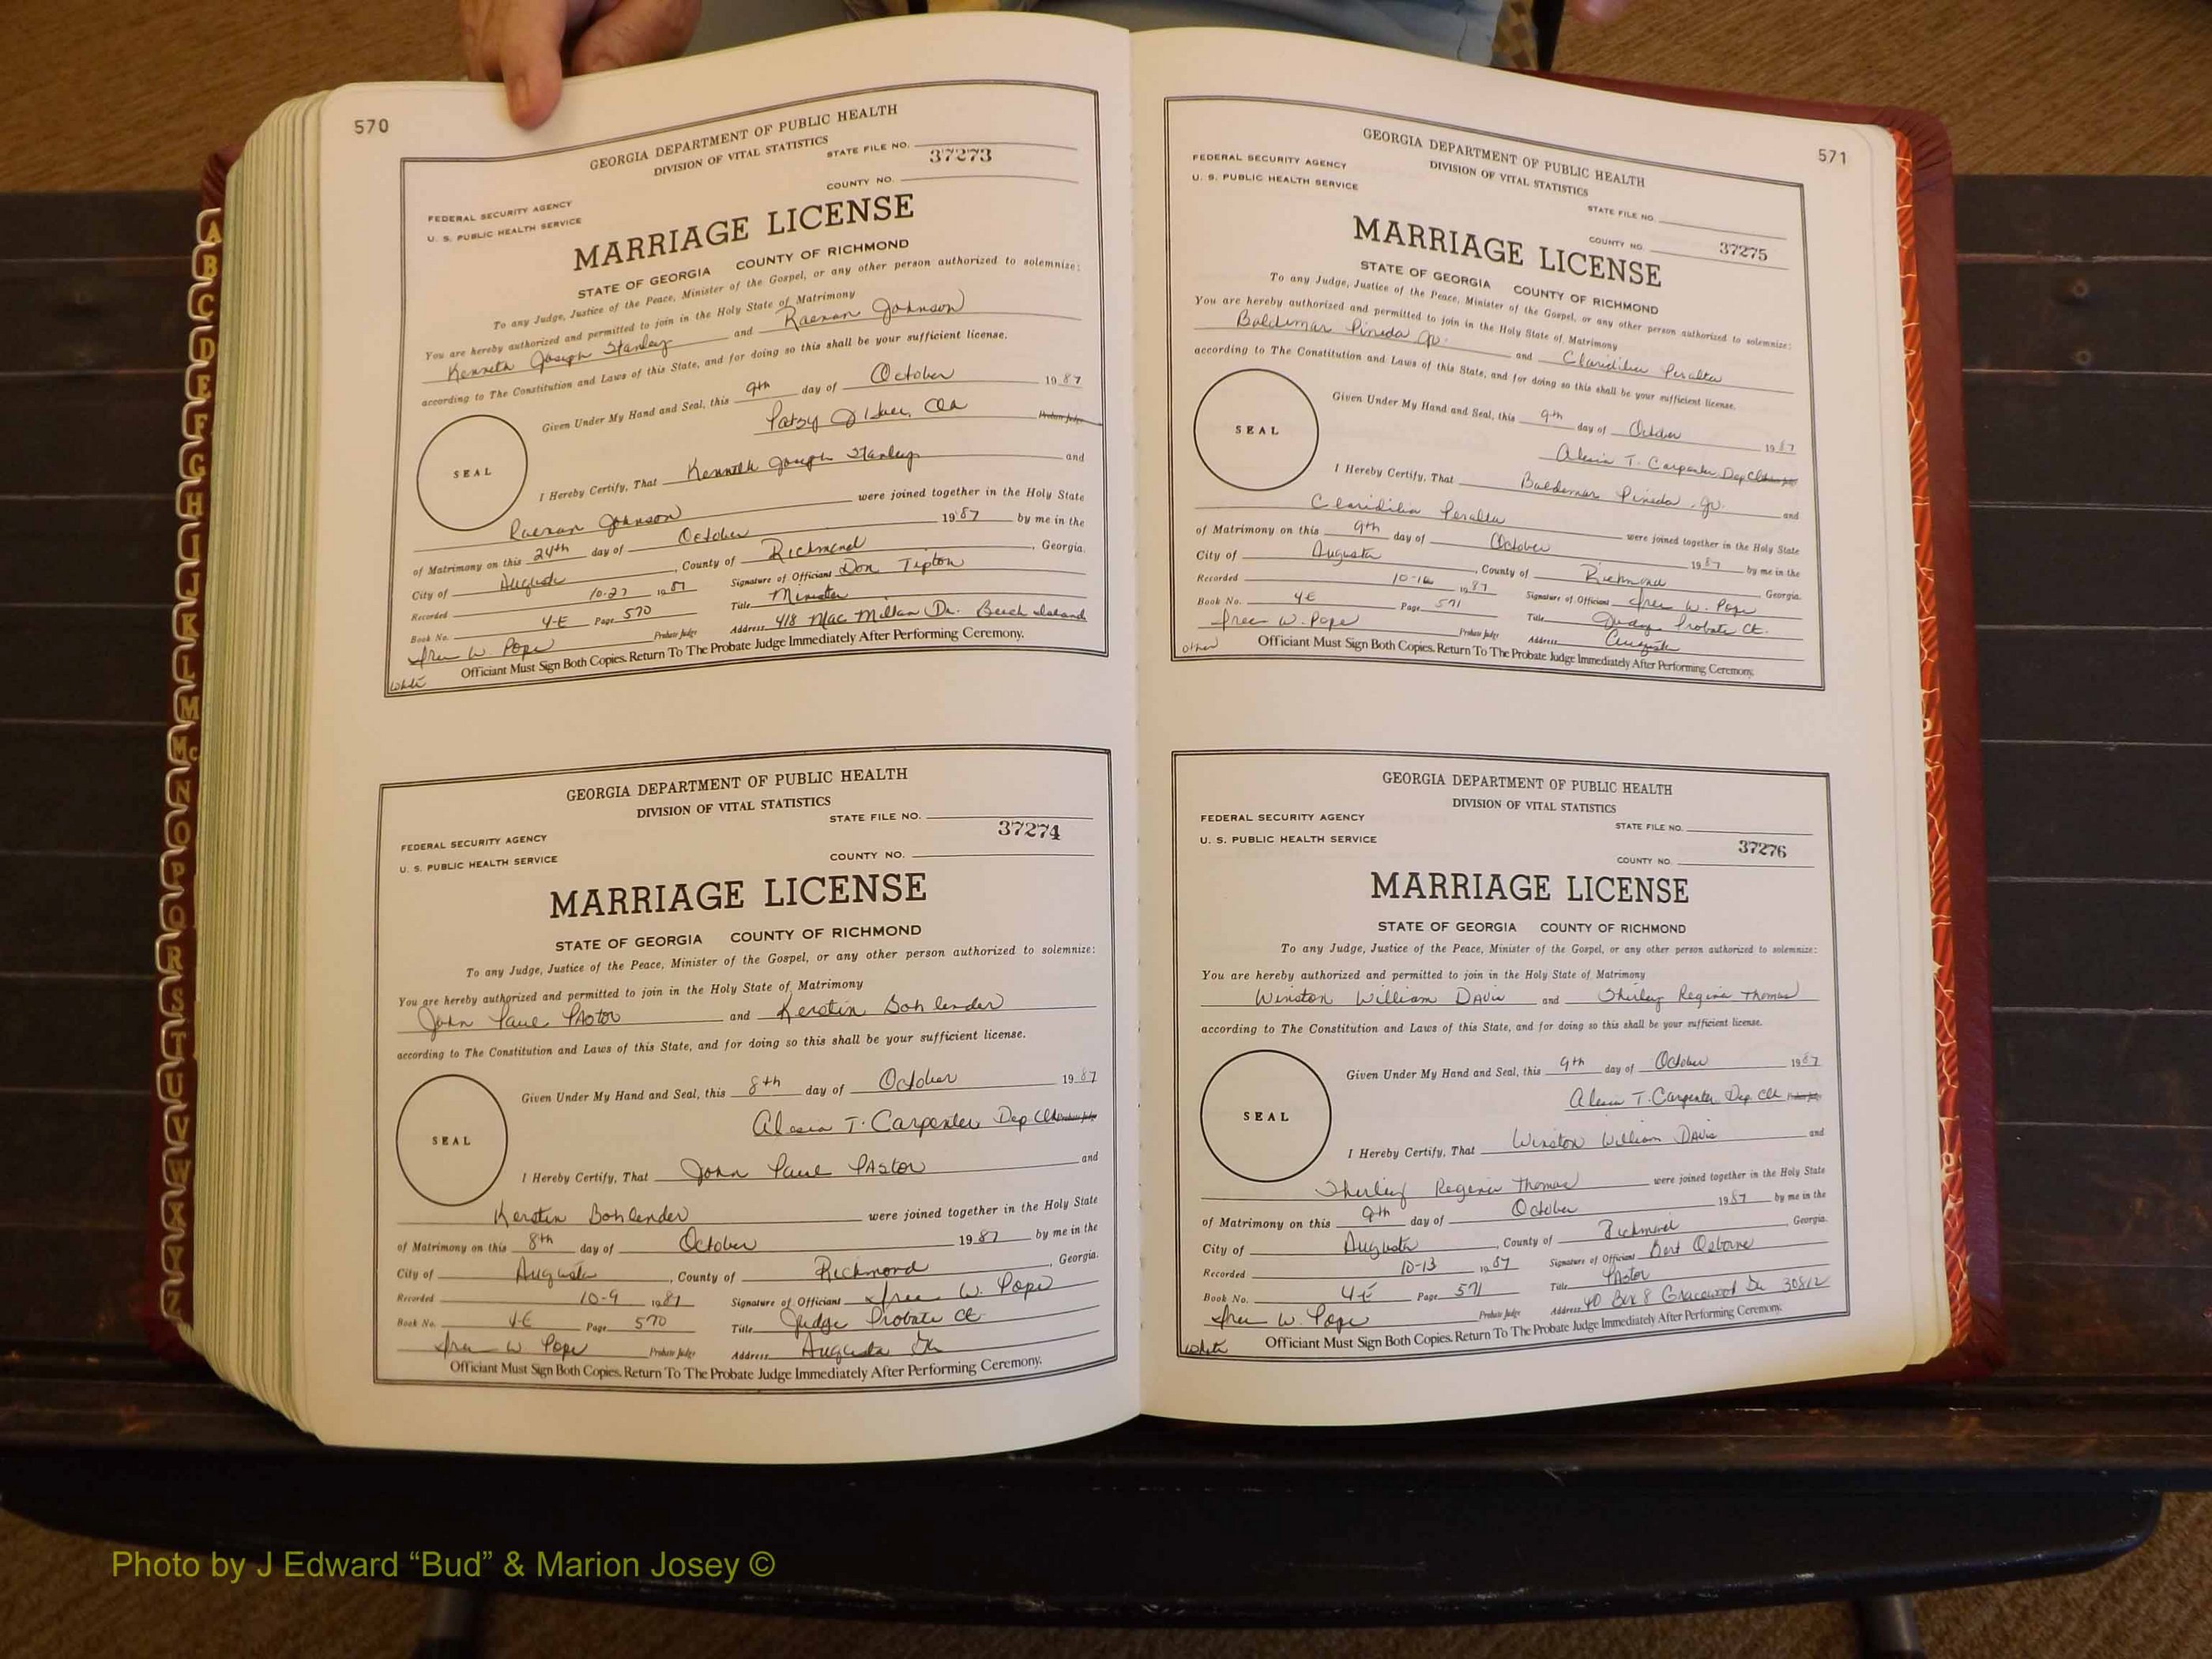 570
GEORGIA DEPARTMENT OF PUBLIC HEALTH
DIVISION OF VITAL STATISTICS
STATE FILE NO. 37273
FEDERAL SECURITY AGENCY
COUNTY NO.
U. S. PUBLIC HEALTH SERVICE
MARRIAGE LICENSE
STATE OF GEORGIA COUNTY OF RICHMOND
To any Judge, Justice of the Peace, Minister of the Gospel, or any other person authorized to solemnize:
You are hereby authorized and permitted to join in the Holy State of Matrimony
Kenneth Joseph Stanley and Raenan Johnson
according to The Constitution and Laws of this State, and for doing so this shall be your sufficient license.
Given Under My Hand and Seal, this 9th day of October 1987
Patsy Clk Probate Judge
SEAL
I Hereby Certify, That Kenneth Joseph Stanley and
Raenan Johnson were joined together in the Holy State
of Matrimony on this 24th day of October 1987 by me in the
City of Augusta, County of Richmond, Georgia.
Recorded 10-27 1987 Signature of Officiant Don Tipton
Book No. 4-E Page 570 Title Minister
W. Pope Probate Judge Address 418 Mac Millan Dr. Beech Island
Officiant Must Sign Both Copies. Return To The Probate Judge Immediately After Performing Ceremony.
White
GEORGIA DEPARTMENT OF PUBLIC HEALTH
DIVISION OF VITAL STATISTICS
STATE FILE NO.
37274
FEDERAL SECURITY AGENCY
COUNTY NO.
U. S. PUBLIC HEALTH SERVICE
MARRIAGE LICENSE
STATE OF GEORGIA COUNTY OF RICHMOND
To any Judge, Justice of the Peace, Minister of the Gospel, or any other person authorized to solemnize:
You are hereby authorized and permitted to join in the Holy State of Matrimony
John Paul PAstor and Kerstin Bohlender
according to The Constitution and Laws of this State, and for doing so this shall be your sufficient license.
Given Under My Hand and Seal, this 8th day of October 1987
Alesia T. Carpenter Dep Clk Probate Judge
SEAL
I Hereby Certify, That John Paul PAstor and
Kerstin Bohlender were joined together in the Holy State
of Matrimony on this 8th day of October 1987 by me in the
City of Augusta, County of Richmond, Georgia.
Recorded 10-9 1987 Signature of Officiant W. Pope
Book No. 4-E Page 570 Title Judge Probate Ct.
W Pope Probate Judge Address Augusta Ga
Officiant Must Sign Both Copies. Return To The Probate Judge Immediately After Performing Ceremony.
571
GEORGIA DEPARTMENT OF PUBLIC HEALTH
DIVISION OF VITAL STATISTICS
FEDERAL SECURITY AGENCY
U. S. PUBLIC HEALTH SERVICE
STATE FILE NO.
COUNTY NO. 37275
MARRIAGE LICENSE
STATE OF GEORGIA COUNTY OF RICHMOND
To any Judge, Justice of the Peace, Minister of the Gospel, or any other person authorized to solemnize:
You are hereby authorized and permitted to join in the Holy State of Matrimony
Baldemar Pineda Jr. and Claridilia Peralta
according to The Constitution and Laws of this State, and for doing so this shall be your sufficient license.
Given Under My Hand and Seal, this 9th day of October 1987
Alesia T. Carpenter Dep Clk Probate Judge
SEAL
I Hereby Certify, That Baldemar Pineda, Jr. and
Claridilia Peralta were joined together in the Holy State
of Matrimony on this 9th day of October 1987 by me in the
City of Augusta, County of Richmond Georgia.
Recorded 10-16 1987 Signature of Officiant W. Pope
Book No. 4E Page 571 Title Judge Probate Ct.
W. Pope Probate Judge Address Augusta
Officiant Must Sign Both Copies. Return To The Probate Judge Immediately After Performing Ceremony.
Other
GEORGIA DEPARTMENT OF PUBLIC HEALTH
DIVISION OF VITAL STATISTICS
FEDERAL SECURITY AGENCY
STATE FILE NO.
U. S. PUBLIC HEALTH SERVICE
COUNTY NO. 37276
MARRIAGE LICENSE
STATE OF GEORGIA COUNTY OF RICHMOND
To any Judge, Justice of the Peace, Minister of the Gospel, or any other person authorized to solemnize:
You are hereby authorized and permitted to join in the Holy State of Matrimony
Winston William DAvis and Shirley Regina Thomas
according to The Constitution and Laws of this State, and for doing so this shall be your sufficient license.
Given Under My Hand and Seal, this 9th day of October 1987
Alesia T. Carpenter Dep. Clk Probate Judge
SEAL
I Hereby Certify, That Winston William DAvis and
Shirley Regina Thomas were joined together in the Holy State
of Matrimony on this 9th day of October 1987 by me in the
City of Augusta, County of Richmond, Georgia.
Recorded 10-13 1987 Signature of Officiant Bert Osborne
Book No. 4-E Page 571 Title PAstor
W. Pope Probate Judge Address PO Box 8 Gracewood Ga 30812
Officiant Must Sign Both Copies. Return To The Probate Judge Immediately After Performing Ceremony.
White
A
B
C
D
E
F
G
H
I
J
K
L
M
Mc
N
O
P
Q
R
S
T
U
V
W
X
Y
Z
Photo by J Edward “Bud” & Marion Josey ©